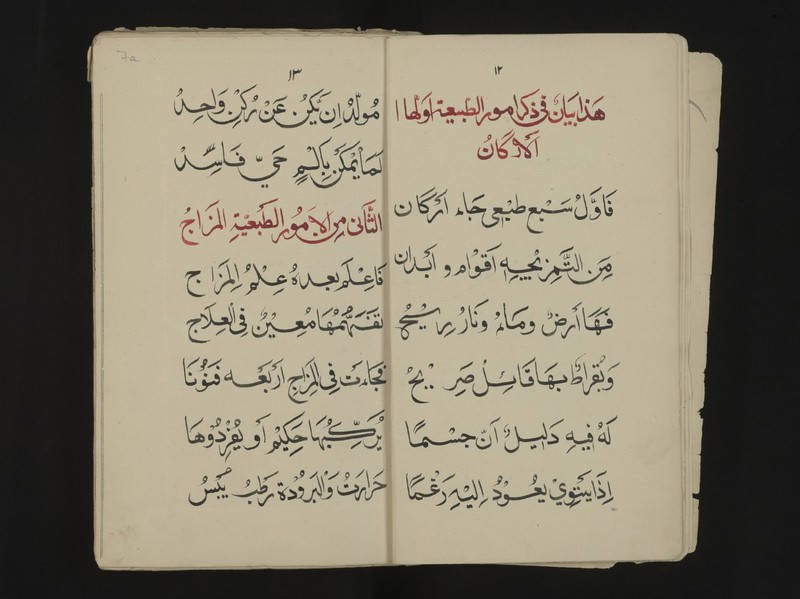 ١٢
هَذا بَيَانٌ فى ذكر امور الطبيعة اولها ا
الاركانُ
فَاوّلْ سَبْع طبْعِى جَاء اركان
مِن التَّمزيجيه اقوام و ابدان
فهَا أرضٌ ومَاءٌ ونَارُ رِيحُ
وَبُقراطُ بهَا قَائلُ صَرِيحُ
لَهُ فيهِ دَليلٌ أنّ جسْمًا
إذَا يَسْتَوِيْ يعُودُ إليهِ رَغْمًا
7a
١٣
مُولّدْ ان يَكُنْ عَنْ رُكنٍ وَاحِدُ
لَمَا يُمكنْ بِالَمٍ حَيّ فَاسِدْ
الثَّانى مِن الامُور الطَبعيّةِ المزَاجُ
فَاعْلَم بعدهُ عِلْمُ المِزَاج
تفهّمهَا مُعينٌ فى العِلَاج
فجَاءَت فى المِزاجِ أربعه فنوُنَا
يُركِّبُهَا حَكِيم أو يُفْرِدُوهَا
حَرارتُ وَالبرودة رَطبُ يُبْسُ